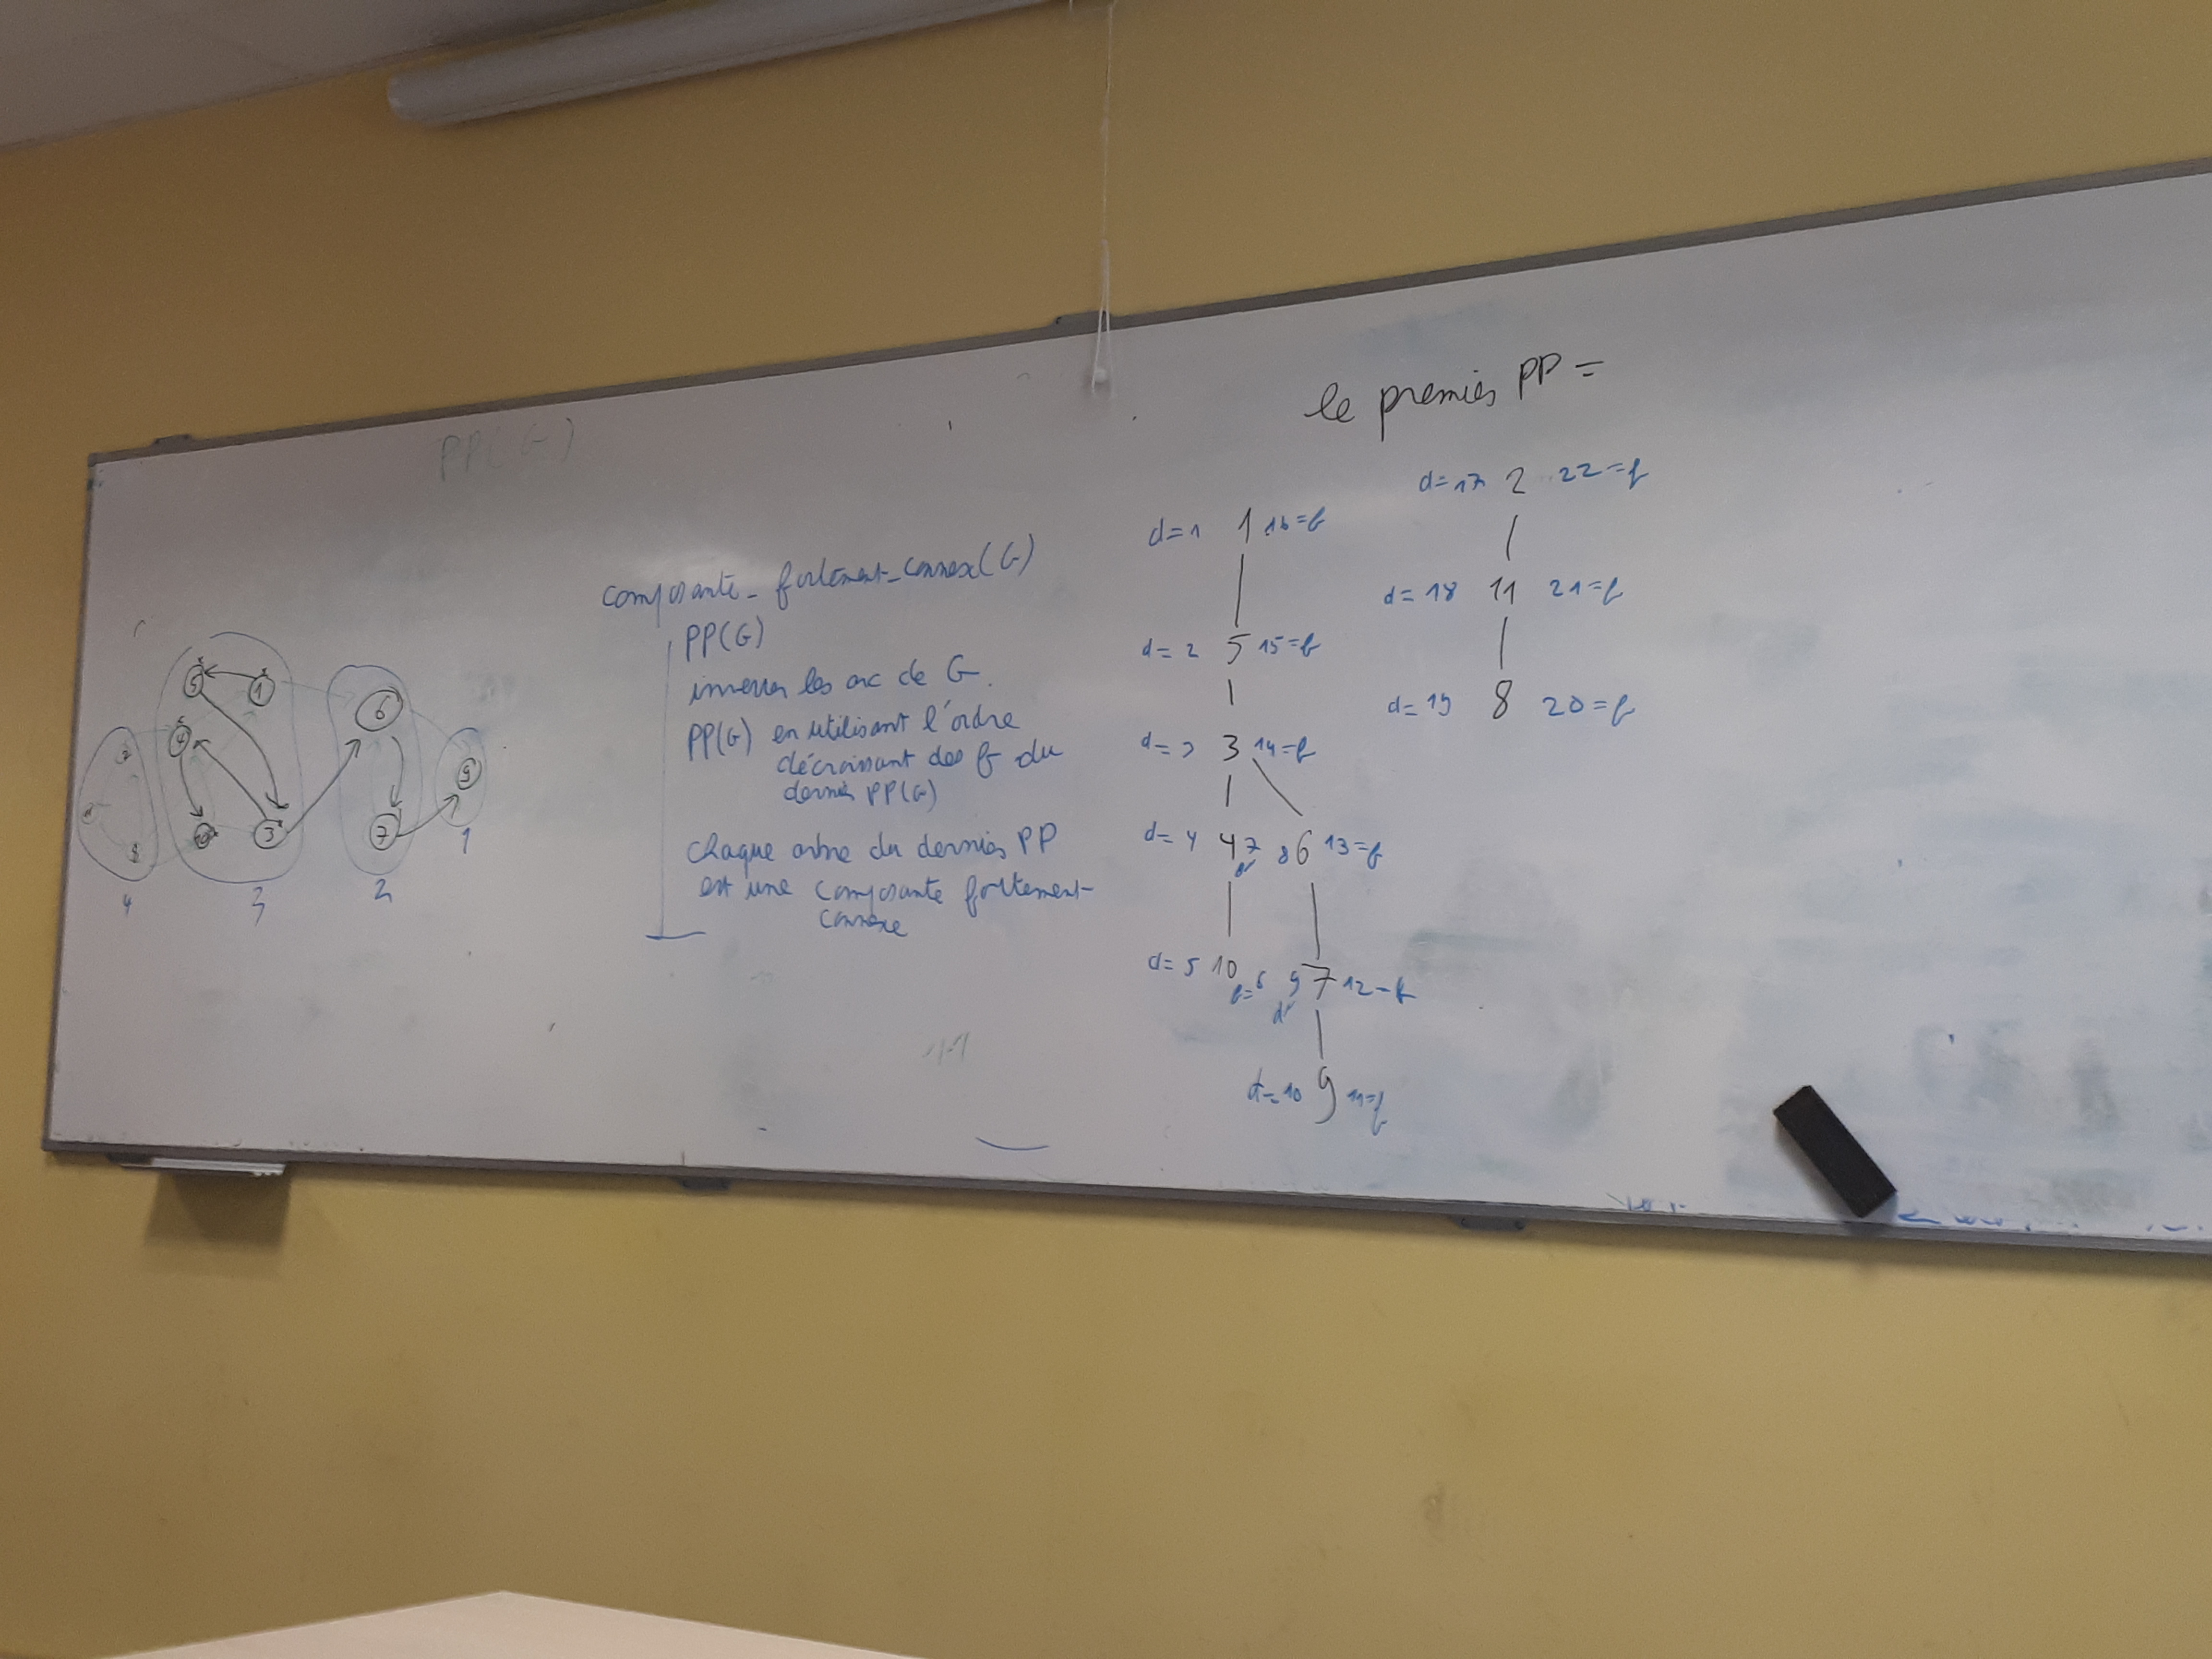 PP(G)
le premier PP =
composante_fortement_connex(G)
PP(G)
inverser les arc de G.
PP(G) en utilisant l'ordre
décroissant des f du
dernier PP(G)
chaque arbre du dernier PP
est une composante fortement-
connexe
5 1 6
2 4 9
11 8 10 3 7
4 3 2 1
d=1 1 16=f
d=2 5 15=f
d=3 3 14=f
d=4 4 7 8 6 13=f
f d
d=5 10 f=6 9 7 12=f
d
d=10 9 11=f
d=17 2 22=f
d=18 11 21=f
d=19 8 20=f
11